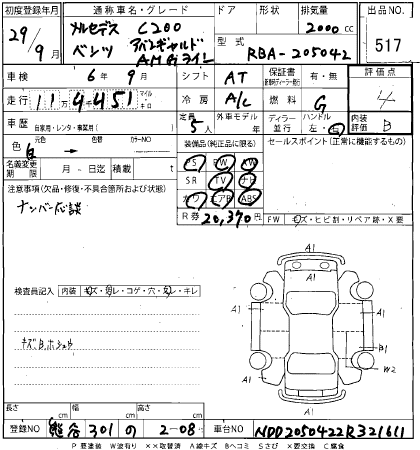 初度登録年月 通称車名・グレード ドア 形状 排気量 出品NO.
29年9月 メルセデスベンツ C200 アバンギャルド AMGライン 2000cc 517
型式 RBA-205042
車検 6年9月 シフト AT 保証書 有・無 評価点
走行 11万4451 マイル キロ 冷房 A/C 燃料 G 4
車歴 自家用・レンタ・事業用( ) 定員 5人 外車モデル年 ディーラー 並行 ハンドル 左・右 内装評価 B
色 元色 白 → 色替 カラーNO
名義変更期限 月 日迄 積載 t
装備品(純正品に限る) セールスポイント(正常に機能する物)
PS PW AW
SR TV ナビ
カワ エアB ABS
注意事項(欠品・修復・不具合箇所および状態)
ナンバー応談
R券 20,370円 FW キズ・ヒビ割・リペア跡・X要
検査員記入 内装 キズ・汚レ・コゲ・穴・スレ・キレ
キズ白ホシュウ
A1
A1
A1
A1
B1
W2
A1
長さ cm 幅 cm 高さ cm
登録NO 熊谷 301 の 2-08 車台NO WDD2050422R321611
P要塗装 W波有り ××取替済 A線キズ Bヘコミ Sさび ×要交換 C腐食